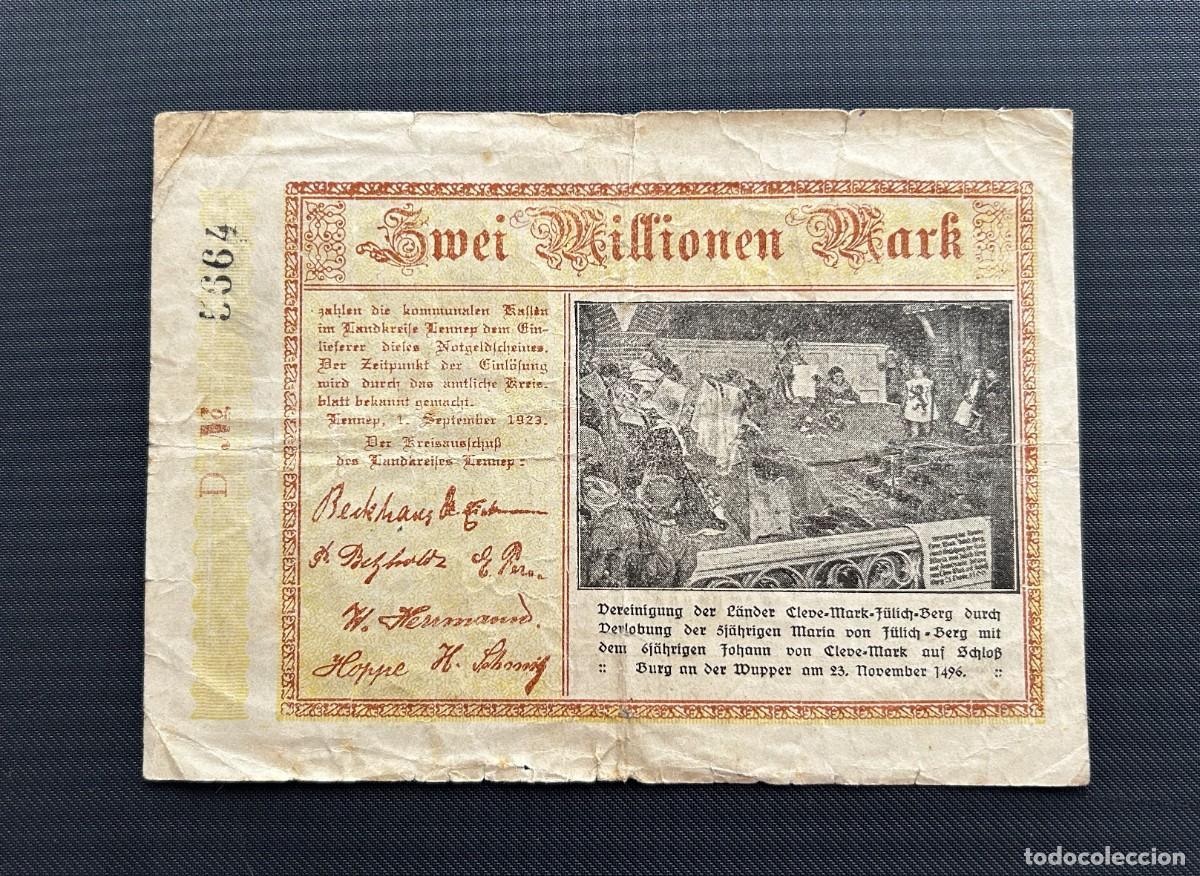 Zwei Millionen Mark
zahlen die kommunalen Kassen
im Landkreise Lennep dem Ein-
lieferer dieses Notgeldscheines.
Der Zeitpunkt der Einlösung
wird durch das amtliche Kreis-
blatt bekannt gemacht.
Lennep, 1. September 1923.
Der Kreisausschuß
des Landkreises Lennep:
Beckhaus
Bechholdt
W. Herrmann.
Hoppe H. Schmitz
Vereinigung der Länder Cleve-Mark-Jülich-Berg durch
Verlobung der 5jährigen Maria von Jülich-Berg mit
dem 6jährigen Johann von Cleve-Mark auf Schloß
:: Burg an der Wupper am 23. November 1496. ::
D № 5664
todocoleccion